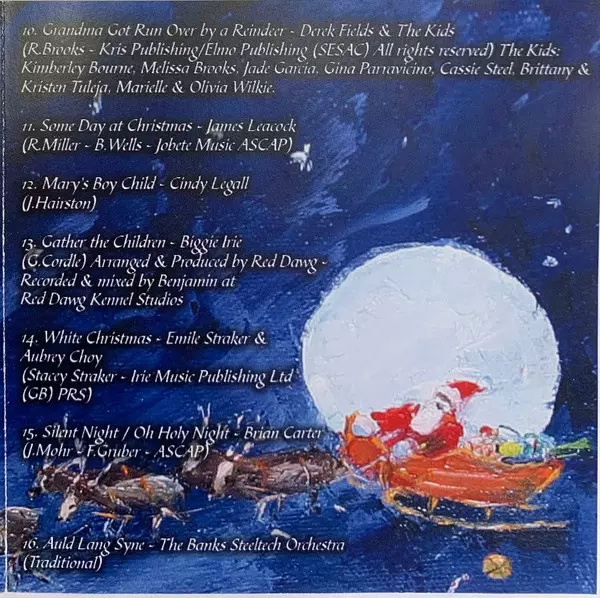 10. Grandma Got Run Over by a Reindeer - Derek Fields & The Kids
(R.Brooks - Kris Publishing/Elmo Publishing (SESAC) All rights reserved) The Kids:
Kimberley Bourne, Melissa Brooks, Jade Garcia, Gina Parravicino, Cassie Steel, Brittany &
Kristen Tuleja, Marielle & Olivia Wilkie.
11. Some Day at Christmas - James Leacock
(R.Miller - B.Wells - Jobete Music ASCAP)
12. Mary's Boy Child - Cindy Legall
(J.Hairston)
13. Gather the Children - Biggie Irie
(G.Cordle) Arranged & Produced by Red Dawg -
Recorded & mixed by Benjamin at
Red Dawg Kennel Studios
14. White Christmas - Emile Straker &
Aubrey Choy
(Stacey Straker - Irie Music Publishing Ltd
(GB) PRS)
15. Silent Night / Oh Holy Night - Brian Carter
(J.Mohr - F.Gruber - ASCAP)
16. Auld Lang Syne - The Banks Steeltech Orchestra
(Traditional)